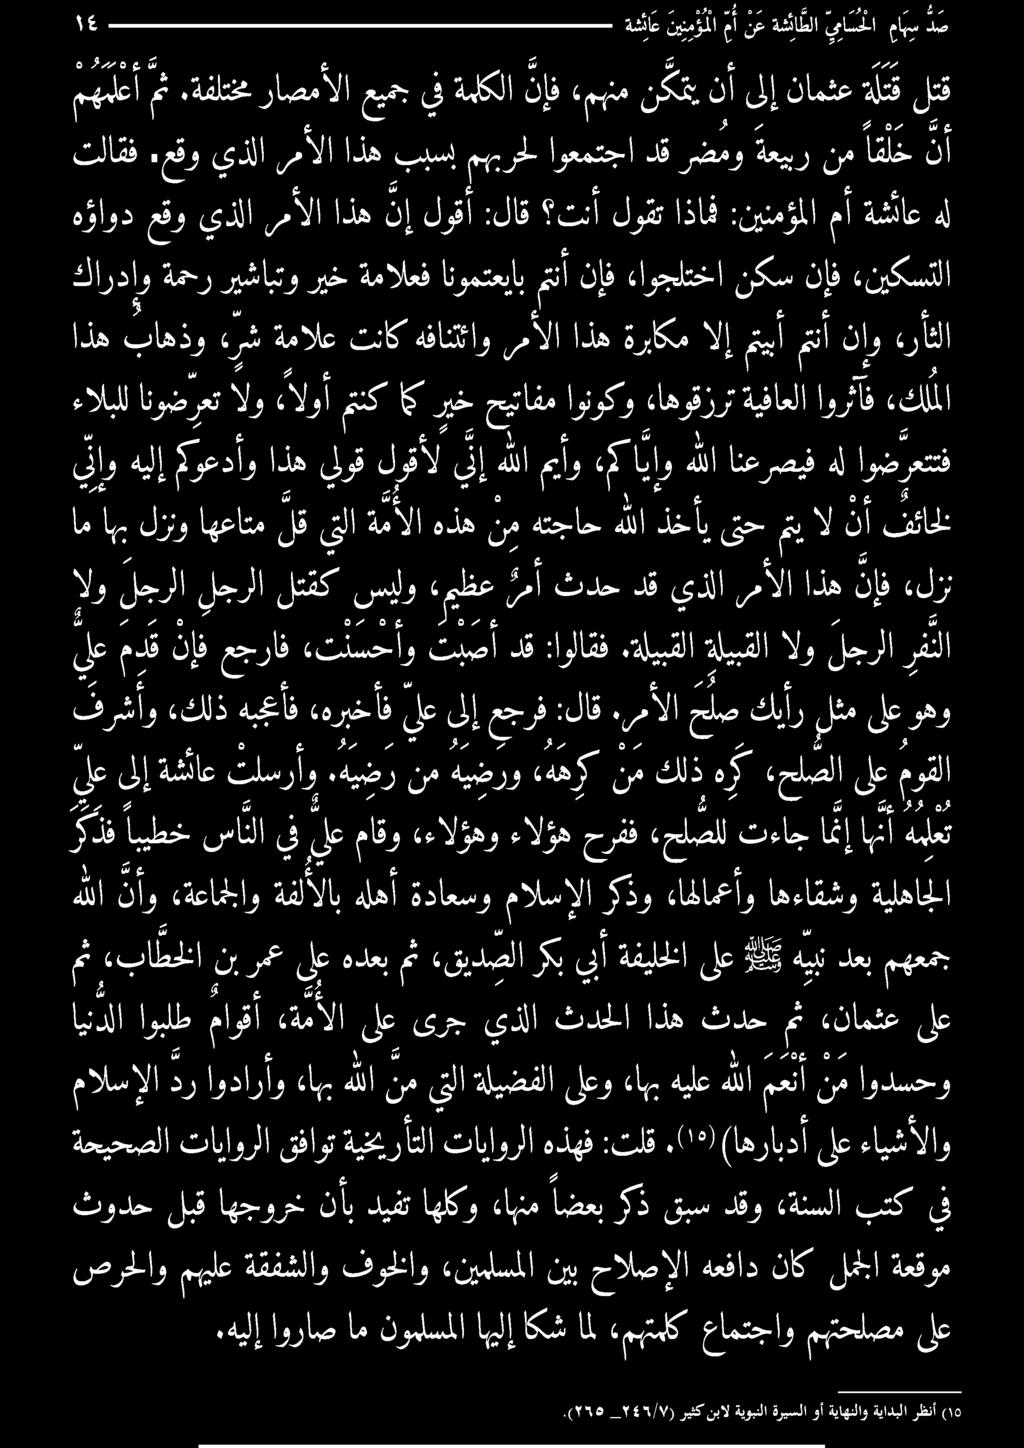 صَدُّ سِهَامِ الْحُسَامِيِّ الطَّائِشة عَنْ أُمِّ الْمُؤْمِنِينَ عَائِشة ١٤
قتل قَتَلَةِ عثمان إلى أن يتمكَّن منهم، فإنَّ الكلمة في جميع الأمصار مختلفة. ثمَّ أَعْلَمَهُمْ
أنَّ خَلْقاً من ربيعةَ ومُضر قد اجتمعوا لحربهم بسبب هذا الأمر الذي وقع. فقالت
له عائشة أم المؤمنين: فماذا تقول أنت؟ قال: أقول إنَّ هذا الأمر الذي وقع دواؤه
التسكين، فإن سكن اختلجوا، فإن أنتم بايعتمونا فعلامة خير وتباشير رحمة وإدراك
الثأر، وإن أنتم أبيتم إلا مكابرة هذا الأمر وائتنافه كانت علامة شرٍّ، وذهابُ هذا
المُلك، فآثروا العافية ترزقوها، وكونوا مفاتيح خيرٍ كما كنتم أولاً، ولا تعرِّضونا للبلاء
فتتعرَّضوا له فيصرعنا الله وإيَّاكم، وأيم الله إنِّي لأقول قولي هذا وأدعوكم إليه وإنِّي
لخائفٌ أنْ لا يتم حتى يأخذ الله حاجته مِنْ هذه الأُمَّة التي قلَّ متاعها ونزل بها ما
نزل، فإنَّ هذا الأمر الذي قد حدث أمرٌ عظيم، وليس كقتل الرجلِ الرجلَ ولا
النَّفرِ الرجلَ ولا القبيلةِ القبيلة. فقالوا: قد أصَبْتَ وأحْسَنْت، فارجع فإنْ قَدِمَ عليٌّ
وهو على مثل رأيك صلُحَ الأمر. قال: فرجع إلى عليّ فأخبره، فأعجبه ذلك، وأشرفَ
القومُ على الصُّلح، كَرِه ذلك مَنْ كرِهَهُ، ورَضِيَهُ من رَضِيَهُ. وأرسلتْ عائشة إلى عليِّ
تُعْلِمُهُ أنَّها إنَّما جاءت للصُّلح، ففرح هؤلاء وهؤلاء، وقام عليٌّ في النَّاس خطيباً فذَكَرَ
الجاهلية وشقاءها وأعمالها، وذكر الإسلام وسعادة أهله بالأُلفة والجماعة، وأنَّ الله
جمعهم بعد نبيِّه ﷺ على الخليفة أبي بكر الصِّديق، ثم بعده على عمر بن الخطَّاب، ثم
على عثمان، ثم حدث هذا الحدث الذي جرى على الأُمَّة، أقوامٌ طلبوا الدُّنيا
وحسدوا مَنْ أنْعَمَ الله عليه بها، وعلى الفضيلة التي منَّ الله بها، وأرادوا ردَّ الإسلام
والأشياء على أدبارها)(١٥). قلت: فهذه الروايات التأريخية توافق الروايات الصحيحة
في كتب السنة، وقد سبق ذكر بعضاً منها، وكلها تفيد بأن خروجها قبل حدوث
موقعة الجمل كان دافعه الإصلاح بين المسلمين، والخوف والشفقة عليهم والحرص
على مصلحتهم واجتماع كلمتهم، لما شكا إليها المسلمون ما صاروا إليه.
١٥) أنظر البداية والنهاية أو السيرة النبوية لابن كثير (٢٤٦/٧_ ٢٦٥).